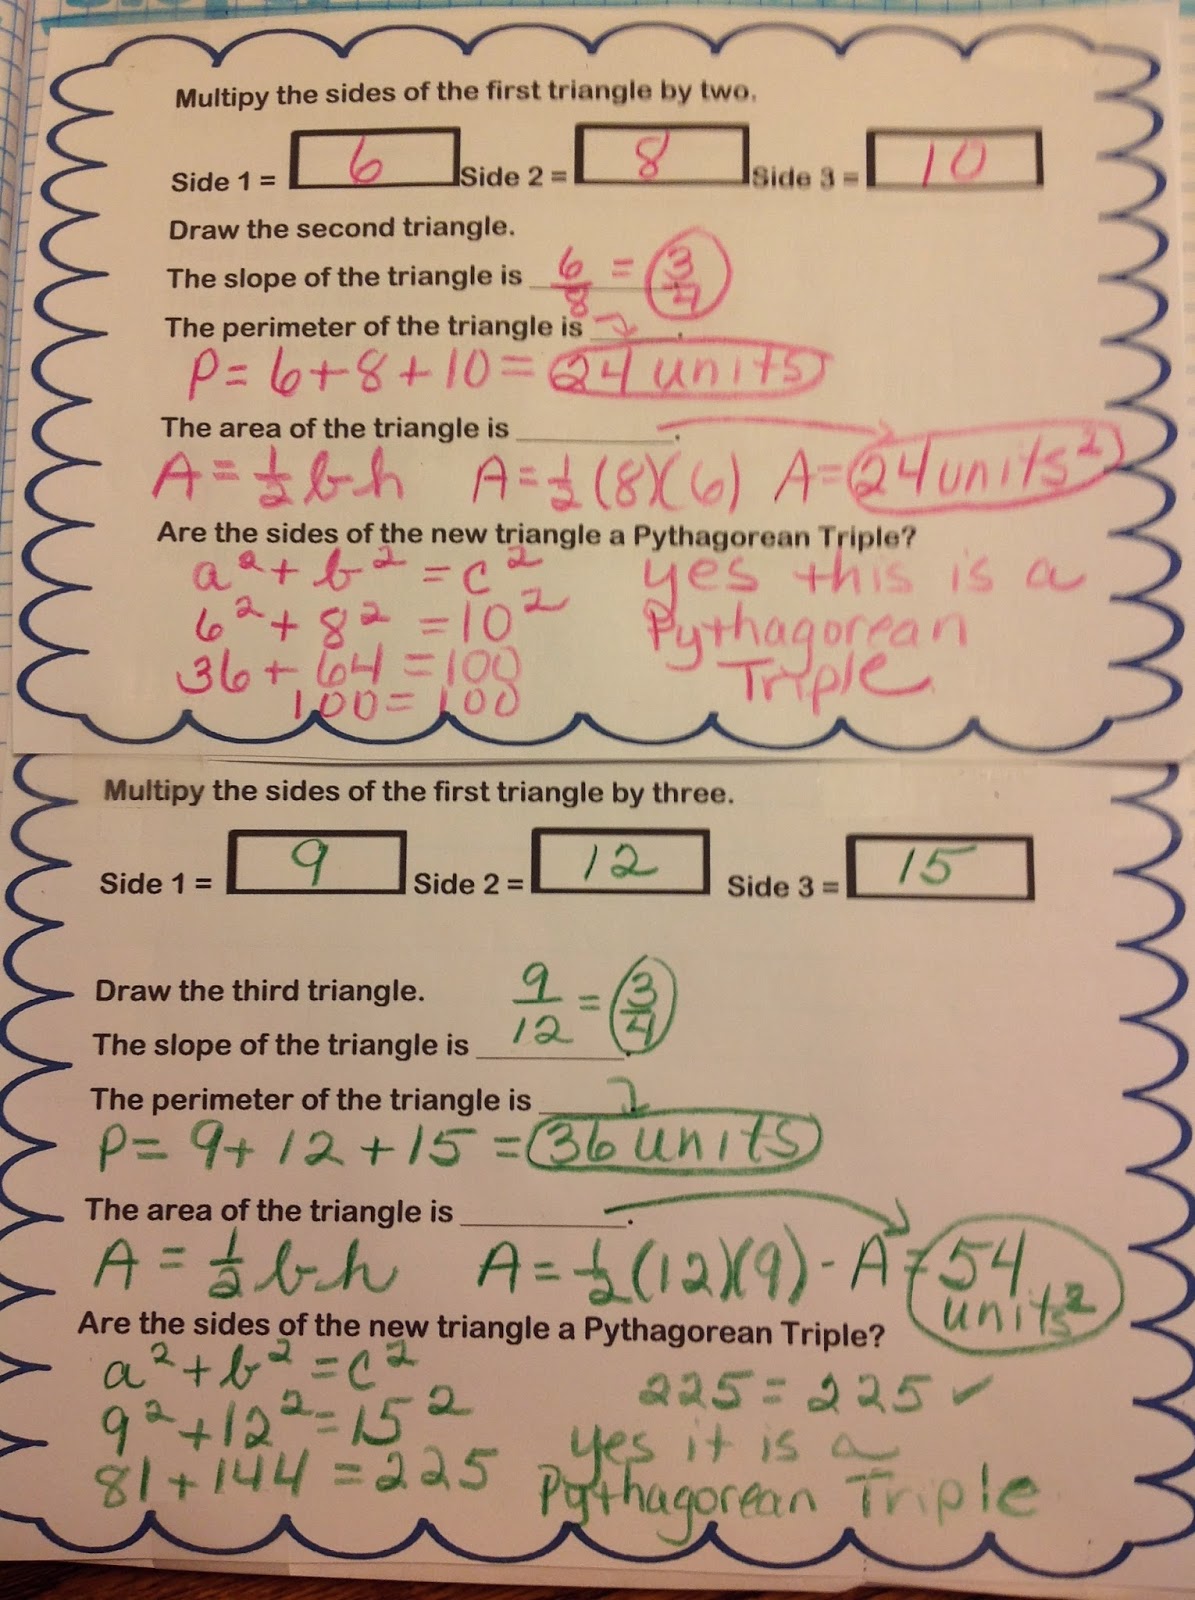 Multipy the sides of the first triangle by two.
Side 1 = 6 Side 2 = 8 Side 3 = 10
Draw the second triangle.
The slope of the triangle is 6/8 = 3/4
The perimeter of the triangle is ____.
P = 6+8+10 = 24 units
The area of the triangle is ____.
A = 1/2 b·h A = 1/2 (8)(6) A = 24 units²
Are the sides of the new triangle a Pythagorean Triple?
a² + b² = c² yes this is a
6² + 8² = 10² Pythagorean
36 + 64 = 100 Triple
100 = 100
Multipy the sides of the first triangle by three.
Side 1 = 9 Side 2 = 12 Side 3 = 15
Draw the third triangle.
The slope of the triangle is 9/12 = 3/4.
The perimeter of the triangle is ____
P = 9 + 12 + 15 = 36 units
The area of the triangle is ____.
A = 1/2 b·h A = 1/2 (12)(9) - A = 54 units²
Are the sides of the new triangle a Pythagorean Triple?
a² + b² = c² 225 = 225 ✓
9² + 12² = 15² yes it is a
81 + 144 = 225 Pythagorean Triple